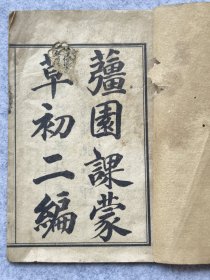 蘁園課蒙
草初二編